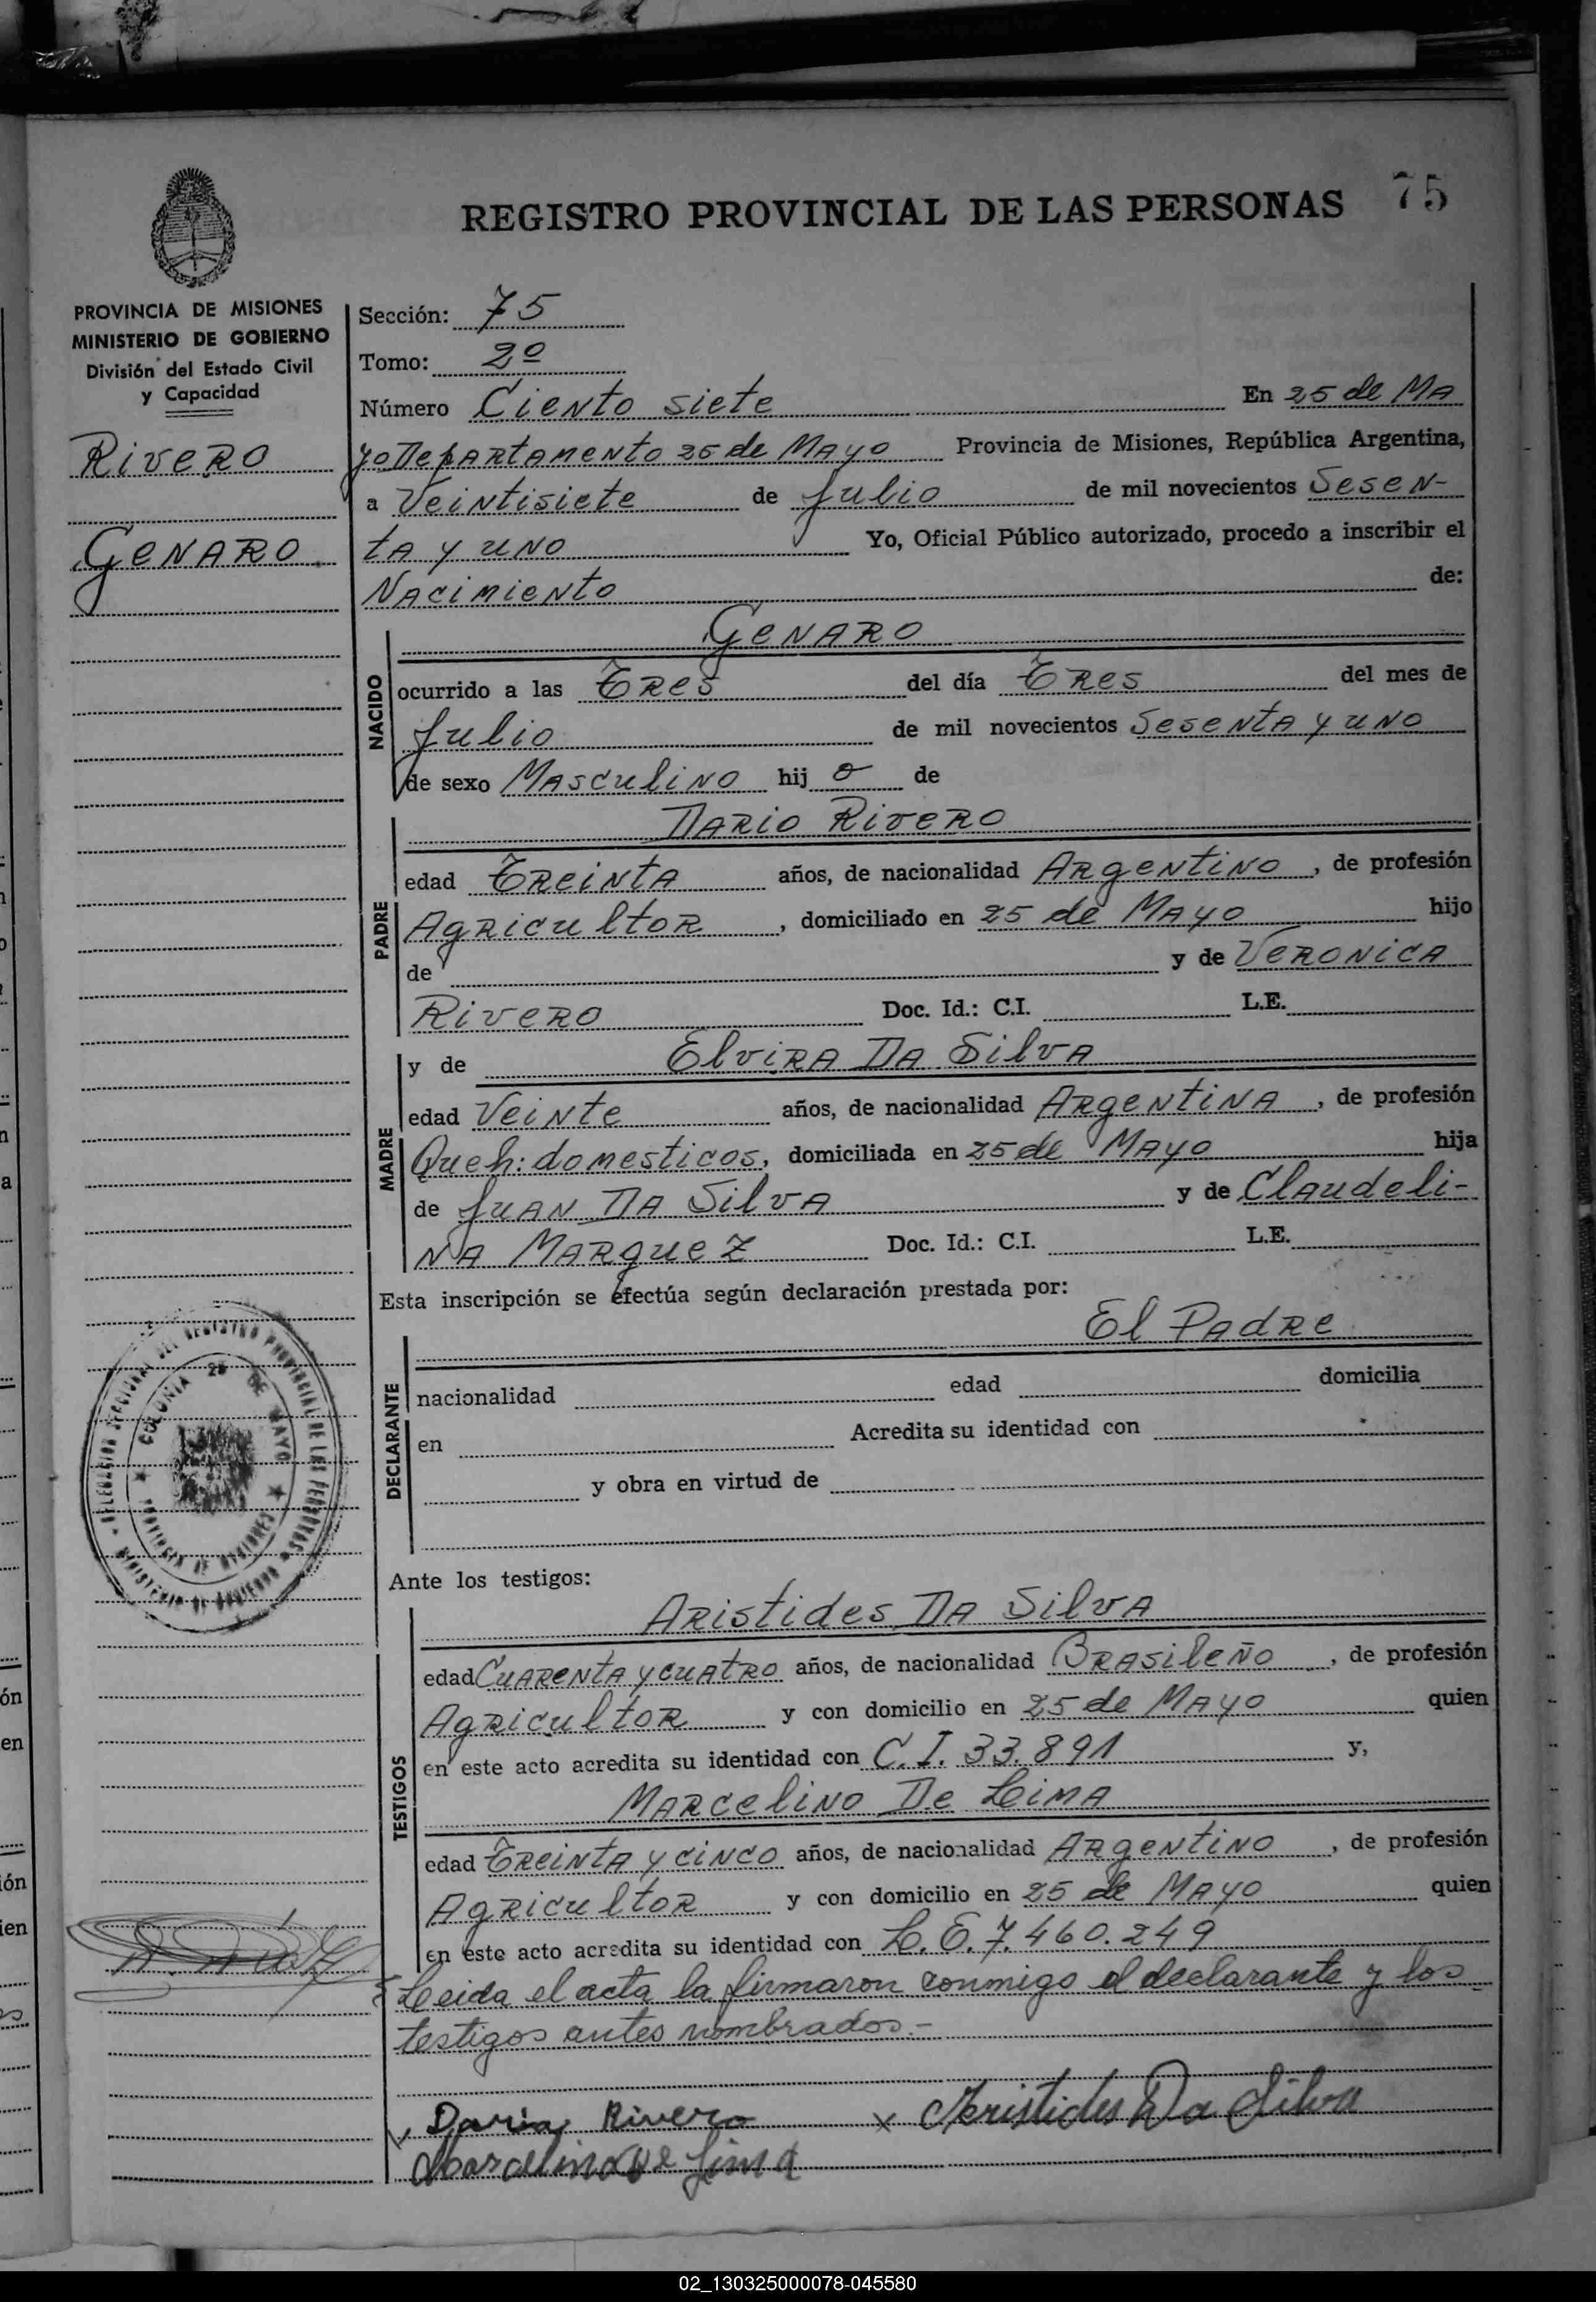 75
REGISTRO PROVINCIAL DE LAS PERSONAS
PROVINCIA DE MISIONES
MINISTERIO DE GOBIERNO
División del Estado Civil
y Capacidad
Rivero
Genaro
Sección: 75
Tomo: 2º
Número Ciento siete En 25 de Ma
yo Departamento 25 de Mayo Provincia de Misiones, República Argentina,
a Veintisiete de Julio de mil novecientos Sesen-
ta y uno Yo, Oficial Público autorizado, procedo a inscribir el
Nacimiento de:
NACIDO
Genaro
ocurrido a las Tres del día Tres del mes de
Julio de mil novecientos Sesenta y uno
de sexo Masculino hij o de
PADRE
Dario Rivero
edad Treinta años, de nacionalidad Argentino, de profesión
Agricultor, domiciliado en 25 de Mayo hijo
de y de Veronica
Rivero Doc. Id.: C.I. L.E.
MADRE
y de Elvira Da Silva
edad Veinte años, de nacionalidad Argentina, de profesión
Queh: domesticos, domiciliada en 25 de Mayo hija
de Juan Da Silva y de Claudeli-
na Marquez Doc. Id.: C.I. L.E.
Esta inscripción se efectúa según declaración prestada por:
DECLARANTE
El Padre
nacionalidad edad domicilia
en Acredita su identidad con
y obra en virtud de
COLONIA 25 DE MAYO
PROVINCIA DE MISIONES
DELEGACION SECCIONAL DEL REGISTRO PROVINCIAL DE LAS PERSONAS
MINISTERIO DE GOBIERNO
Ante los testigos:
TESTIGOS
Aristides Da Silva
edad Cuarenta y cuatro años, de nacionalidad Brasileño, de profesión
Agricultor y con domicilio en 25 de Mayo quien
en este acto acredita su identidad con C.I. 33.891 y,
Marcelino De Lima
edad Treinta y cinco años, de nacionalidad Argentino, de profesión
Agricultor y con domicilio en 25 de Mayo quien
en este acto acredita su identidad con L.E. 7.460.249
Leida el acta la firmaron conmigo el declarante y los
testigos antes nombrados.-
Dario Rivero x Aristides Da Silva
Marcelino de Lima
02_130325000078-045580